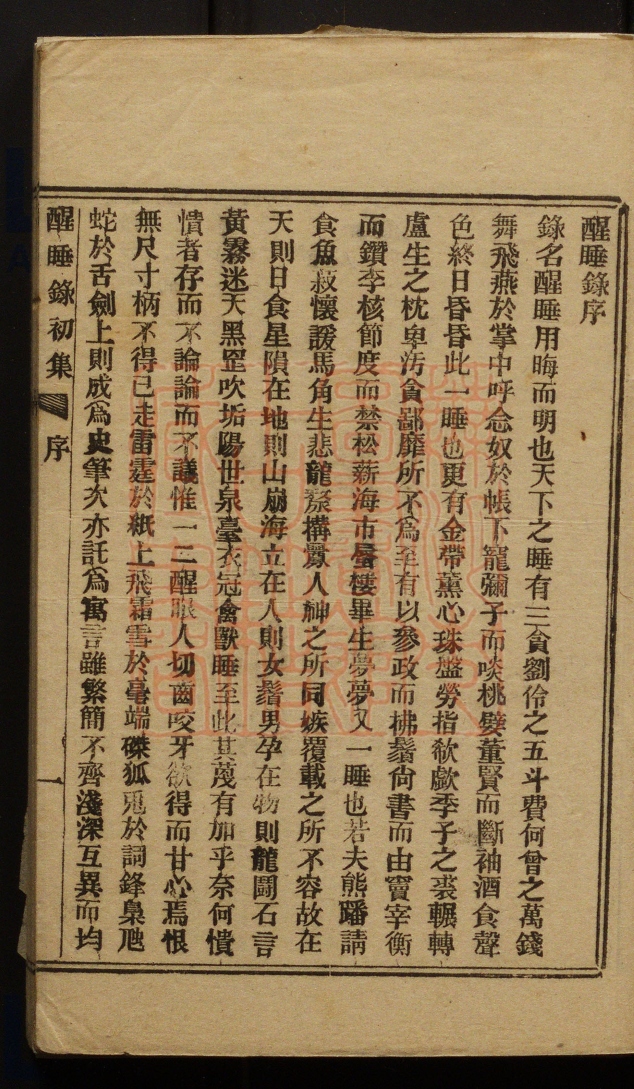 醒睡錄序
錄名醒睡用晦而明也天下之睡有三貪劉伶之五斗費何曾之萬錢
舞飛燕於掌中呼念奴於帳下寵彌子而啖桃嬖董賢而斷袖酒食聲
色終日昏昏此一睡也更有金帶薰心珠盤勞指欷歔季子之裘輾轉
盧生之枕卑汚貪鄙靡所不爲至有以參政而拂鬚尙書而由竇宰衡
而鑽李核節度而禁松薪海市蜃樓畢生夢夢又一睡也若夫熊蹯請
食魚菽懷諼馬角生悲龍漦構釁人神之所同嫉覆載之所不容故在
天則日食星隕在地則山崩海立在人則女鬚男孕在物則龍鬬石言
黃霧迷天黑罡吹垢陽世泉臺衣冠禽獸睡至此其蔑有加乎奈何憒
憒者存而不論論而不議惟一二醒眼人切齒咬牙欲得而甘心焉恨
無尺寸柄不得已走雷霆於紙上飛霜雪於毫端磔狐鬼於詞鋒梟虺
蛇於舌劍上則成爲史筆次亦託爲寓言雖繁簡不齊淺深互異而均
醒睡錄初集 序 一